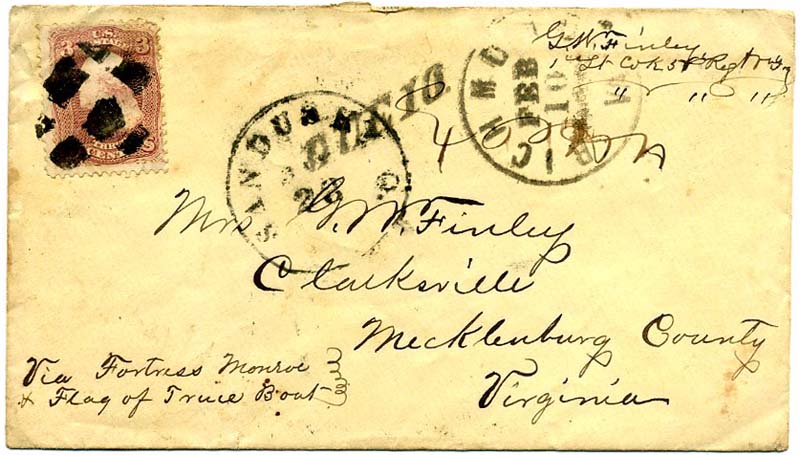 3 U.S. POSTAGE 3
THREE CENTS
SANDUSKY O.
23
DUE 10
RICHMOND VA
FEB
10
G. W. Finley
1st Lt Co K 56 Regt Va
" " "
Mrs G. W. Finley
Clarksville
Mecklenburg County
Virginia
Via Fortress Monroe
& Flag of Truce Boat